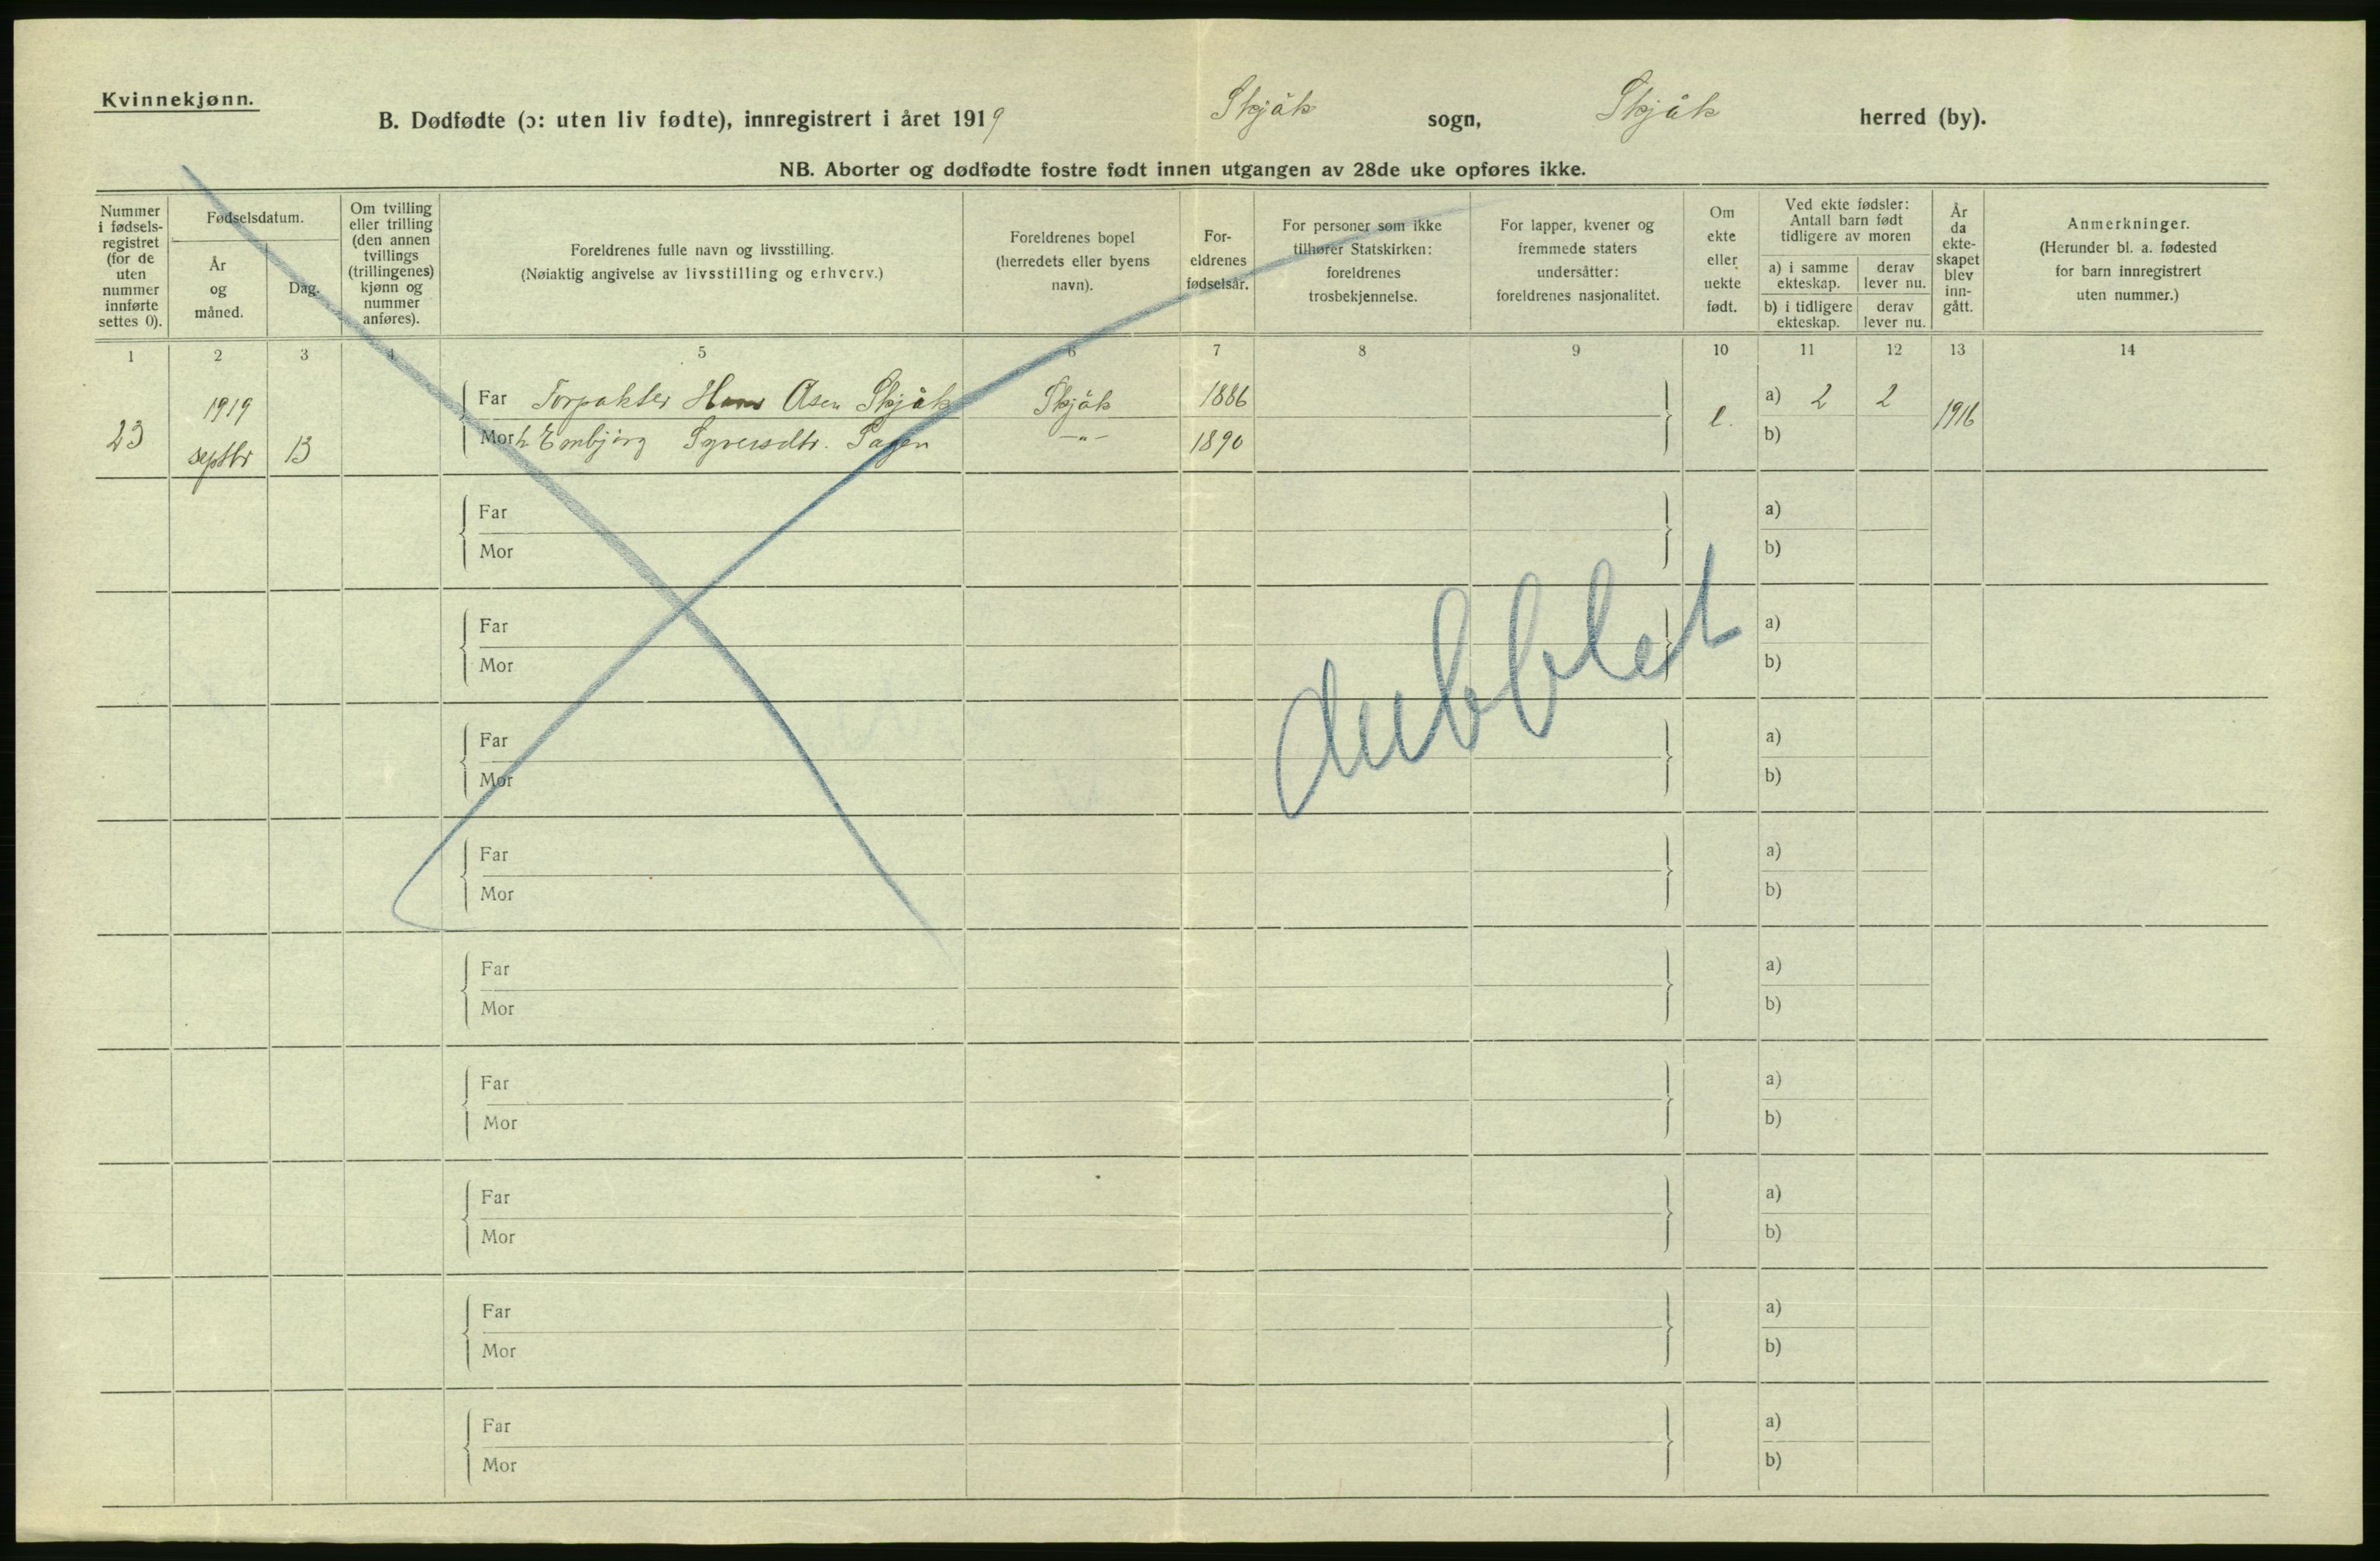 Kvinnekjønn.
B. Dødfødte (ɔ: uten liv fødte), innregistrert i året 1919 Skjåk sogn, Skjåk herred (by).
NB. Aborter og dødfødte fostre født innen utgangen av 28de uke opføres ikke.
Nummer
i fødsels-
registret
(for de
uten
nummer
innførte
settes 0).
Fødselsdatum.
År
og
måned.
Dag.
Om tvilling
eller trilling
(den annen
tvillings
(trillingenes)
kjønn og
nummer
anføres).
Foreldrenes fulle navn og livsstilling.
(Nøiaktig angivelse av livsstilling og erhverv.)
Foreldrenes bopel
(herredets eller byens
navn).
For-
eldrenes
fødselsår.
For personer som ikke
tilhører Statskirken:
foreldrenes
trosbekjennelse.
For lapper, kvener og
fremmede staters
undersåtter:
foreldrenes nasjonalitet.
Om
ekte
eller
uekte
født.
Ved ekte fødsler:
Antall barn født
tidligere av moren
a) i samme
ekteskap.
derav
lever nu.
b) i tidligere
ekteskap.
derav
lever nu.
År
da
ekte-
skapet
blev
inn-
gått.
Anmerkninger.
(Herunder bl. a. fødested
for barn innregistrert
uten nummer.)
1 2 3 4 5 6 7 8 9 10 11 12 13 14
23 1919 septbr 13
Far Forpakter Hans Åsen Skjåk Skjåk 1886 e. a) 2 2 1916
Mor h. Embjørg Syversdtr. -"- 1890 b)
Far a)
Mor b)
dubblet
Far a)
Mor b)
Far a)
Mor b)
Far a)
Mor b)
Far a)
Mor b)
Far a)
Mor b)
Far a)
Mor b)
Far a)
Mor b)
Far a)
Mor b)